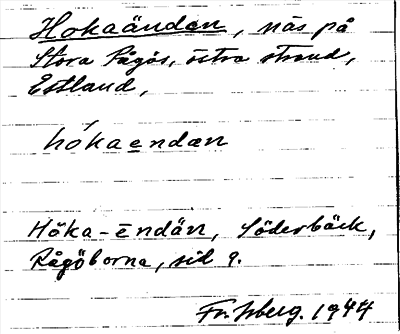 Hokaändan, näs på
Stora Rågö, östra strand,
Estland,
hókaendan
Hōka-ēndän, Söderbäck,
Rågöborna, sid 9.
Fr. Isberg. 1944